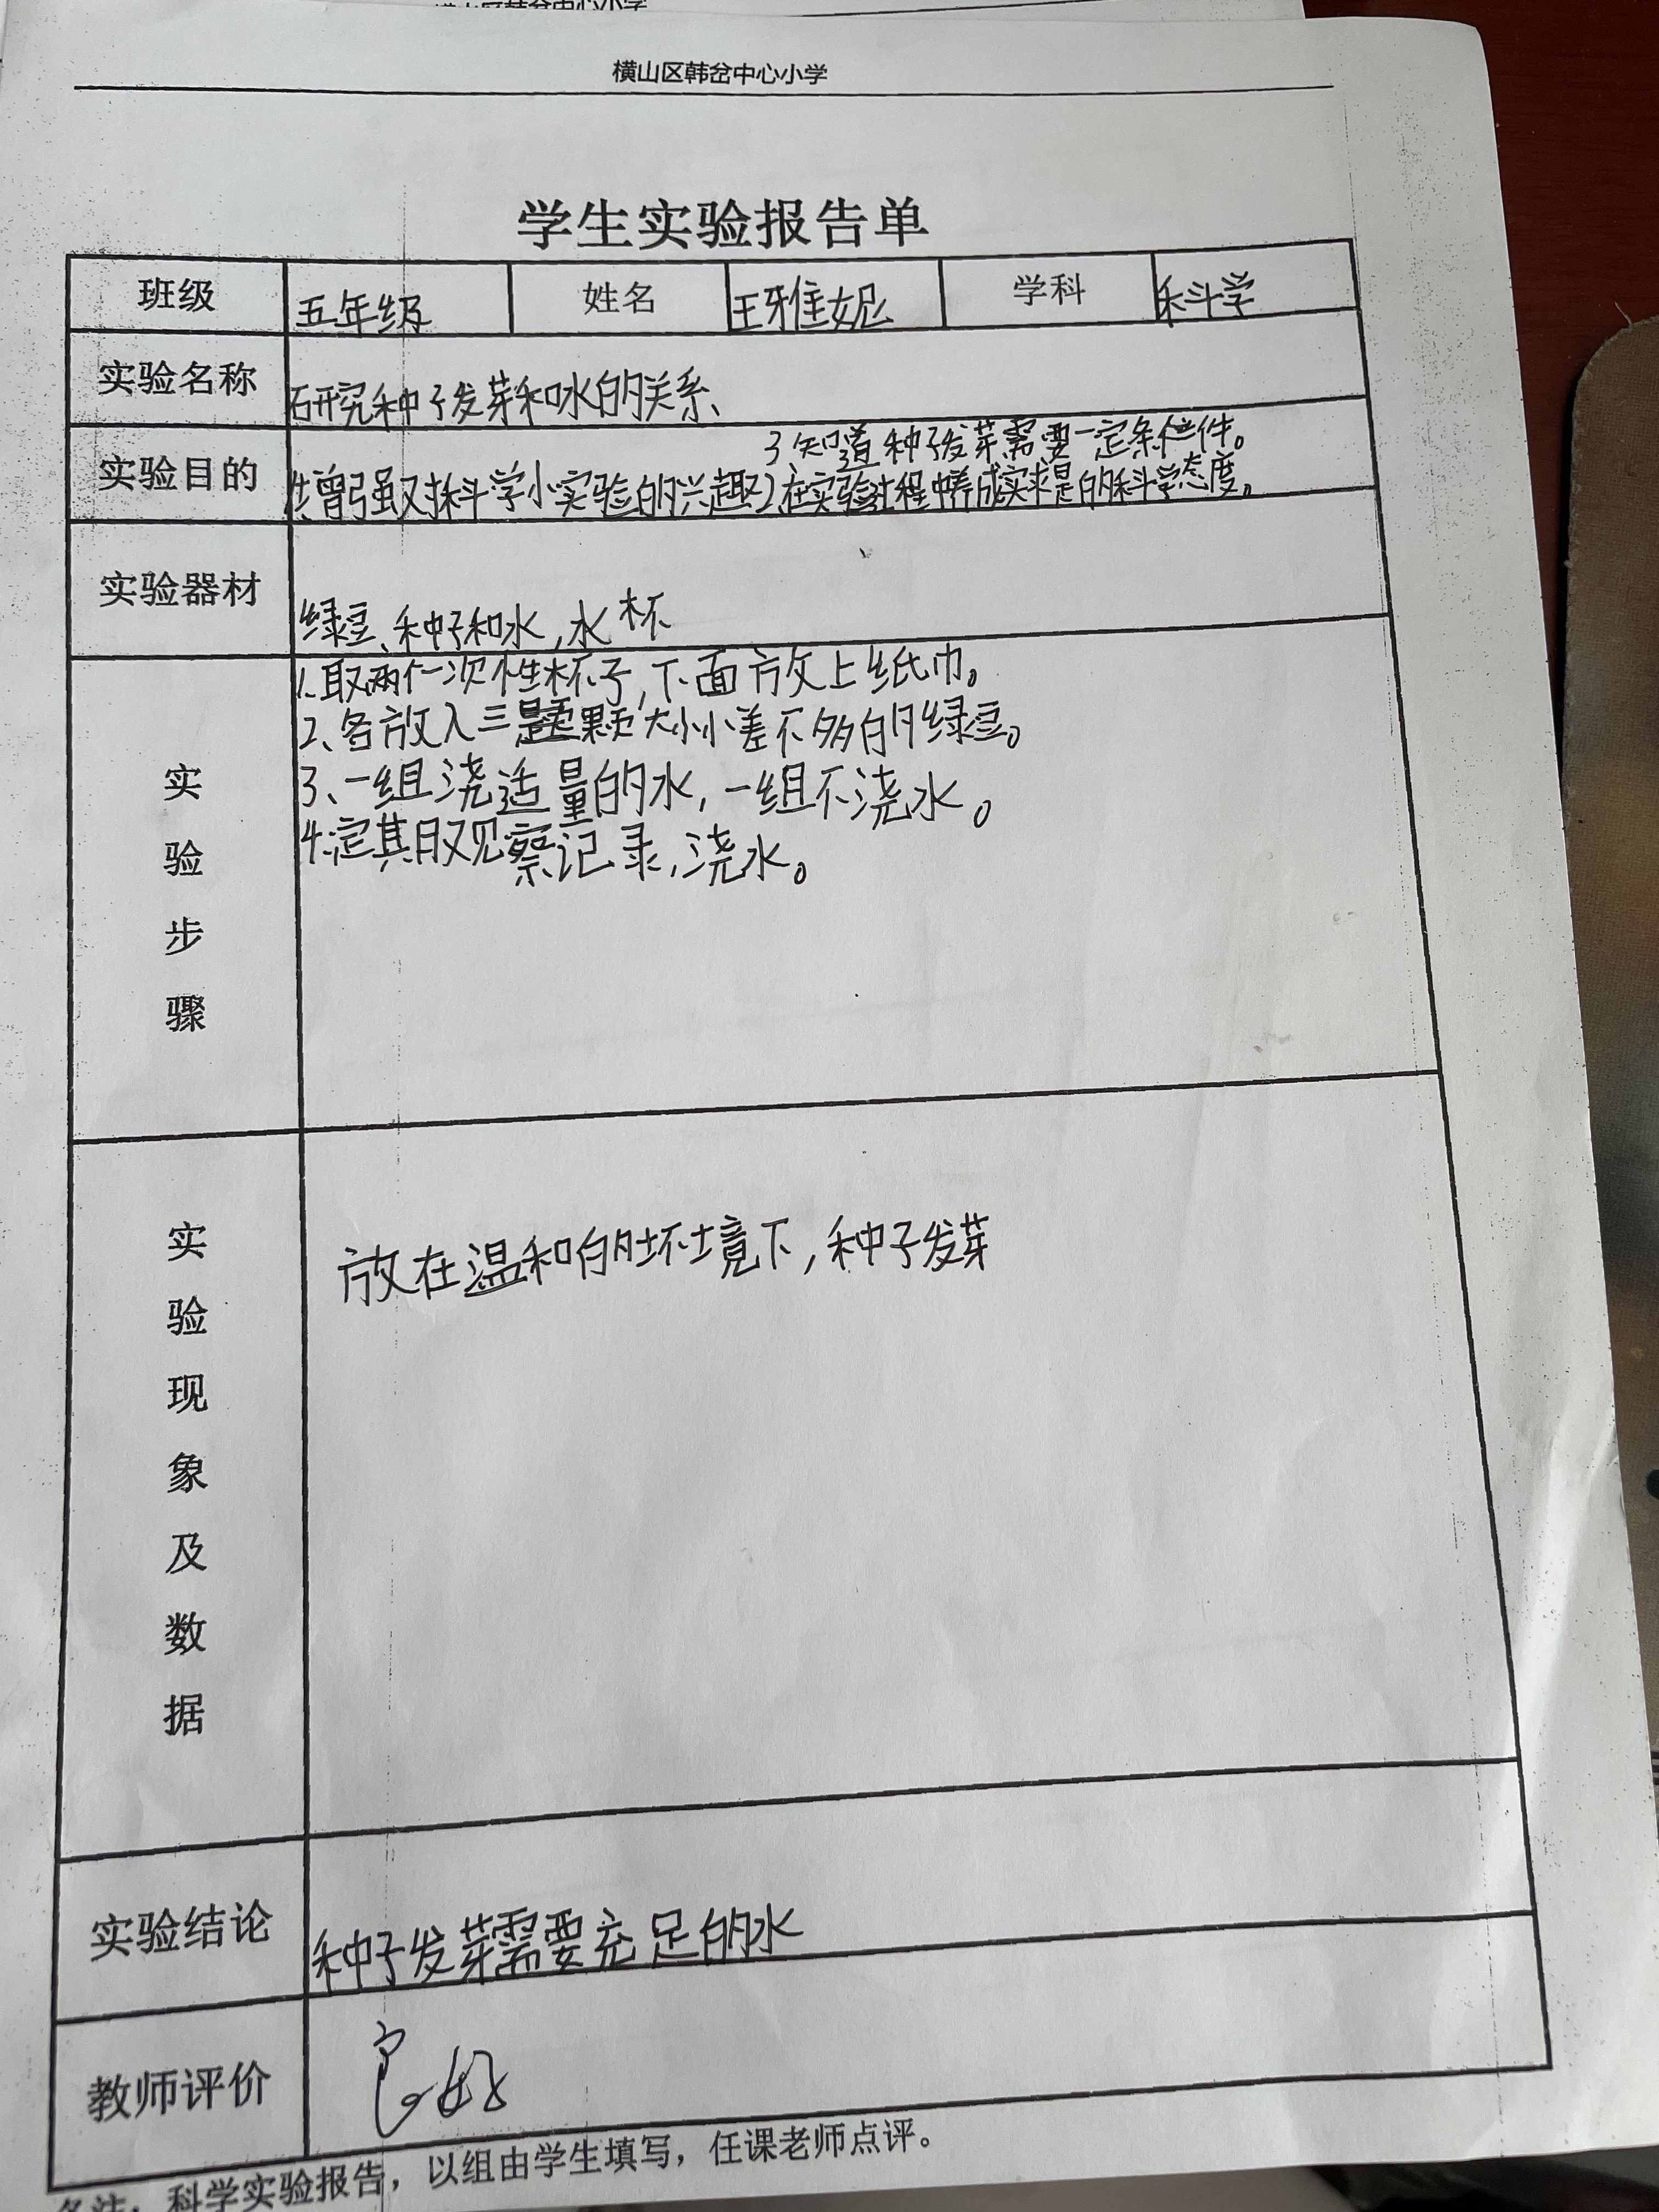 横山区韩岔中心小学
学生实验报告单
班级 五年级 姓名 王雅妮 学科 科学
实验名称 研究种子发芽和水的关系、
3知道种子发芽需要一定条件。
实验目的 1.增强对科学小实验的兴趣2.在实验过程中养成实求是的科学态度。
实验器材 绿豆、种子和水,水杯
1.取两个一次性杯子,下面放上纸巾。
2、各放入三颗大小差不多的绿豆。
3、一组浇适量的水,一组不浇水。
4.定期观察记录,浇水。
实
验
步
骤
放在温和的环境下,种子发芽
实
验
现
象
及
数
据
实验结论 种子发芽需要充足的水
教师评价 良好
备注:科学实验报告,以组由学生填写,任课老师点评。